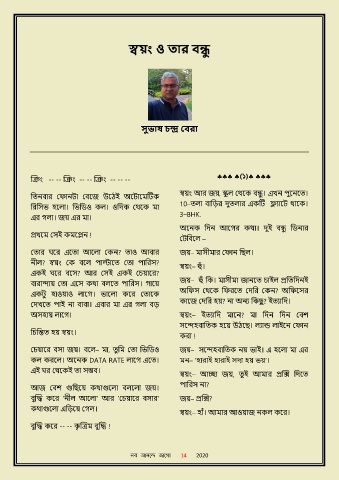 স্বয়ং ও তার বন্ধু
সুভাষ চন্দ্র বেরা
ক্রিং -- -- ক্রিং -- -- ক্রিং -- -- --
তিনবার ফোনটা বেজে উঠেই অটোমেটিক
রিসিভ হলো। ভিডিও কল। ওদিক থেকে মা
এর গলা। জয় এর মা।
প্রথমে সেই কমপ্লেন !
তোর ঘরে এতো আলো কেন? তাও আবার
নীল? স্বয়ং কে বলে পাল্টাতে তো পারিস?
একই ঘরে বসে? আর সেই একই চেয়ারে?
বারান্দায় তো এসে কথা বলতে পারিস। গায়ে
একটু হাওয়াও লাগে। ভালো করে তোকে
দেখতে পাই না বাবা। এবার মা এর গলা বড়
অসহায় লাগে।
চিন্তিত হয় স্বয়ং।
চেয়ারে বসা জয়। বলে– মা, তুমি তো ভিডিও
কল করলে। অনেক DATA RATE লাগে এতে।
এই ঘর থেকেই তা সম্ভব।
আজ বেশ গুছিয়ে কথাগুলো বললো জয়।
বুদ্ধি করে 'নীল আলো' আর 'চেয়ারে বসার'
কথাগুলো এড়িয়ে গেল।
বুদ্ধি করে -- -- কৃত্রিম বুদ্ধি !
♣♣♣ ♣(১)♣ ♣♣♣
স্বয়ং আর জয়, স্কুল থেকে বন্ধু। এখন পুনেতে।
10-তলা বাড়ির দুতলার একটি ফ্ল্যাটে থাকে।
3-BHK.
অনেক দিন আগের কথা। দুই বন্ধু ডিনার
টেবিলে –
জয়– মাসীমার ফোন ছিল।
স্বয়ং– হুঁ।
জয়– হুঁ কি। মাসীমা জানতে চাইল প্রতিদিনই
অফিস থেকে ফিরতে দেরি কেন? অফিসের
কাজে দেরি হয়? না অন্য কিছু? ইত্যাদি।
স্বয়ং– ইত্যাদি মানে? মা দিন দিন বেশ
সন্দেহবাতিক হয়ে উঠছে। ল্যান্ড লাইনে ফোন
করা !
জয়– সন্দেহবাতিক নয় ভাই। এ হলো মা এর
মন– 'হারাই হারাই সদা হয় ভয়'।
স্বয়ং– আচ্ছা জয়, তুই আমার প্রক্সি দিতে
পারিস না?
জয়– প্রক্সি?
স্বয়ং– হ্যাঁ। আমার আওয়াজ নকল করে।
14 2020